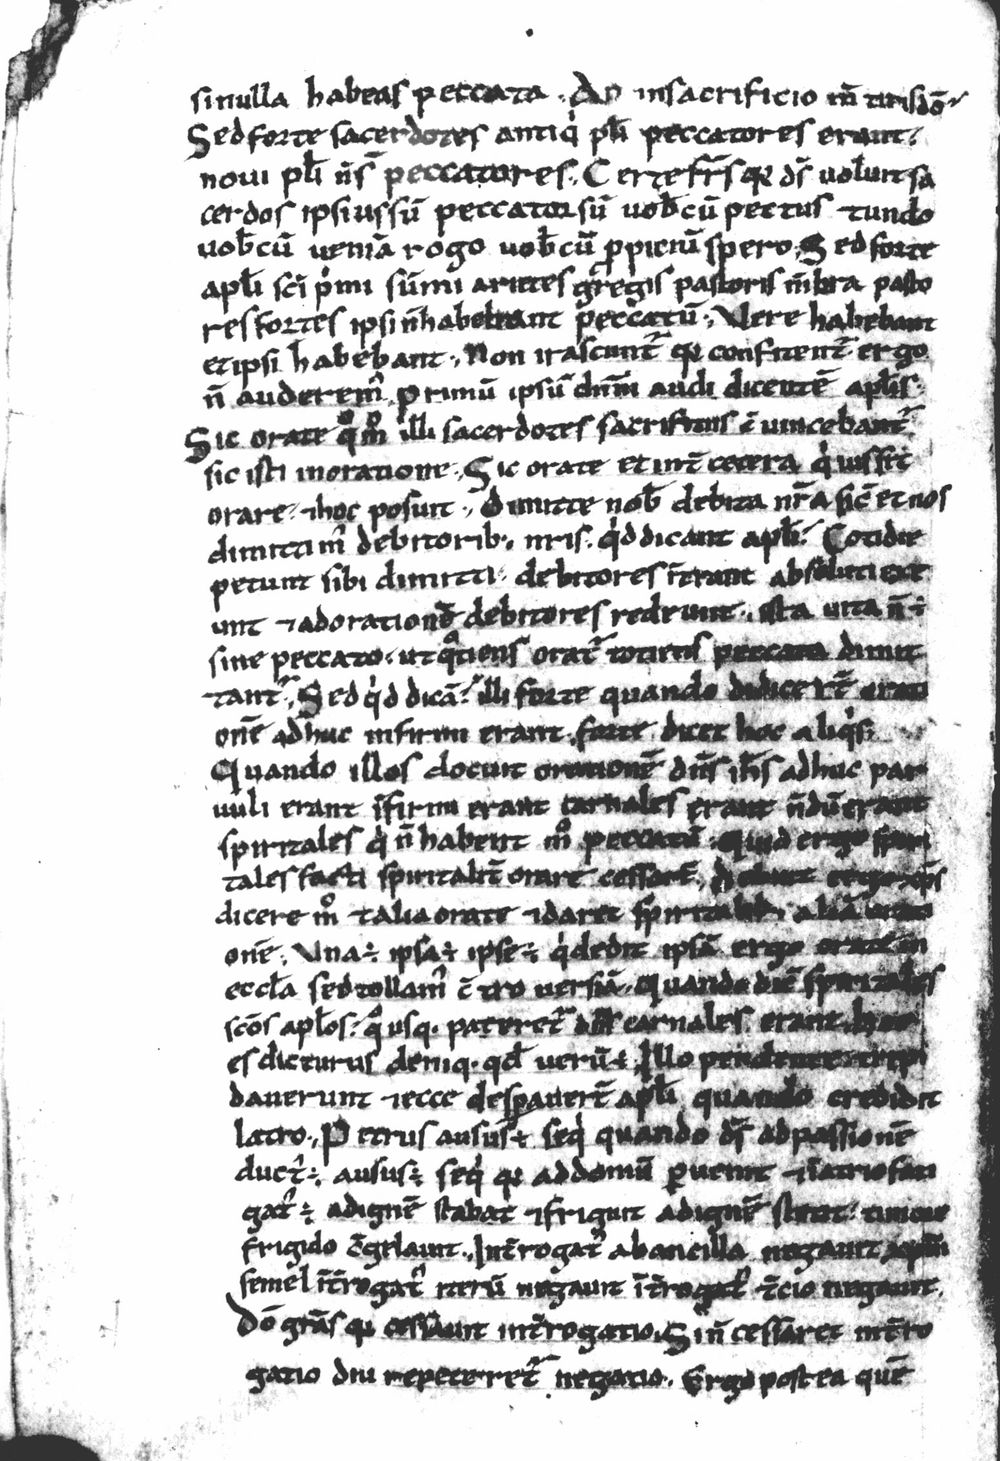 si nulla habeas peccata. An in sacrificio
Sed forte sacerdotes antiqi ppli peccatores erant.
noui ppli ñs peccatores. Certe frs qr ds uoluit sa
cerdos ipsius sū peccator sū uobcū pectus tundo
uobcū ueniā rogo uobcū ppiciū spero. Sed forte
apli sci pmi sūmi arietes gregis pastoris mbra pasto
res fortes ipsi ñ habebant peccatū. Vere habebant
et ipsi habebant. Non irascunt qr confitent ergo
ñ auderem. Primū ipsū dnm audi dicentē aplis.
Sic orate qo mo illi sacerdotes sacrificiis
sic isti in oratione. Sic orate et int cetera q iussit
orare. ⁊ hoc posuit. Dimitte nob debita nra sic et nos
dimittim debitorib. nris. qd dicant apli. Cotidie
petunt sibi dimitti. debitores itrant absoluti exe
unt ⁊ ad oratione debitores redeunt. ista uita ñ ÷
sine peccato. ut qtiens orat totiens peccata dimit
tant. Sed qd dicā. illi forte quando didicert orati
onē adhuc infirmi erant. forte dicet hoc aliqs.
Quando illos docuit orationē dns ihs adhuc par
uuli erant ifirmi erant carnales erant ñdū erant
spiritales q ñ habent mo peccatū. Quid ergo spiri
tales facti spiritalit orare cessart. Debuit ergo xps
dicere mo talia orate ⁊ daret spiritalib. aliā orati
onē. Vna ÷ ipsa ÷ ipse ÷ q dedit ipsā ergo orate in
eccla sed tollam c tro uersiā. Quando dic spiritales
scos aplos. qusq. pateret dns carnales erant. hoc
es dicturus deniq. qd uerū ÷. Illo pendente trepi
dauerunt ⁊ ecce desperauert apli quando credidit
latro. Petrus ausus ÷ seq quando ds ad passionē
duct ÷. ausus ÷ seq qr ad domū puenit ⁊ i atrio fati
gat ÷ ad ignē stabat ⁊ friguit ad ignē stetit. timore
frigido cgelauit. Introgat ab ancilla negauit xpm
semel itrogat iterū negauit itrogat tcio negauit.
Do gras qr cessauit introgatio. Si ñ cessaret intro
gatio diu repeteret negatio. Ergo postea quē